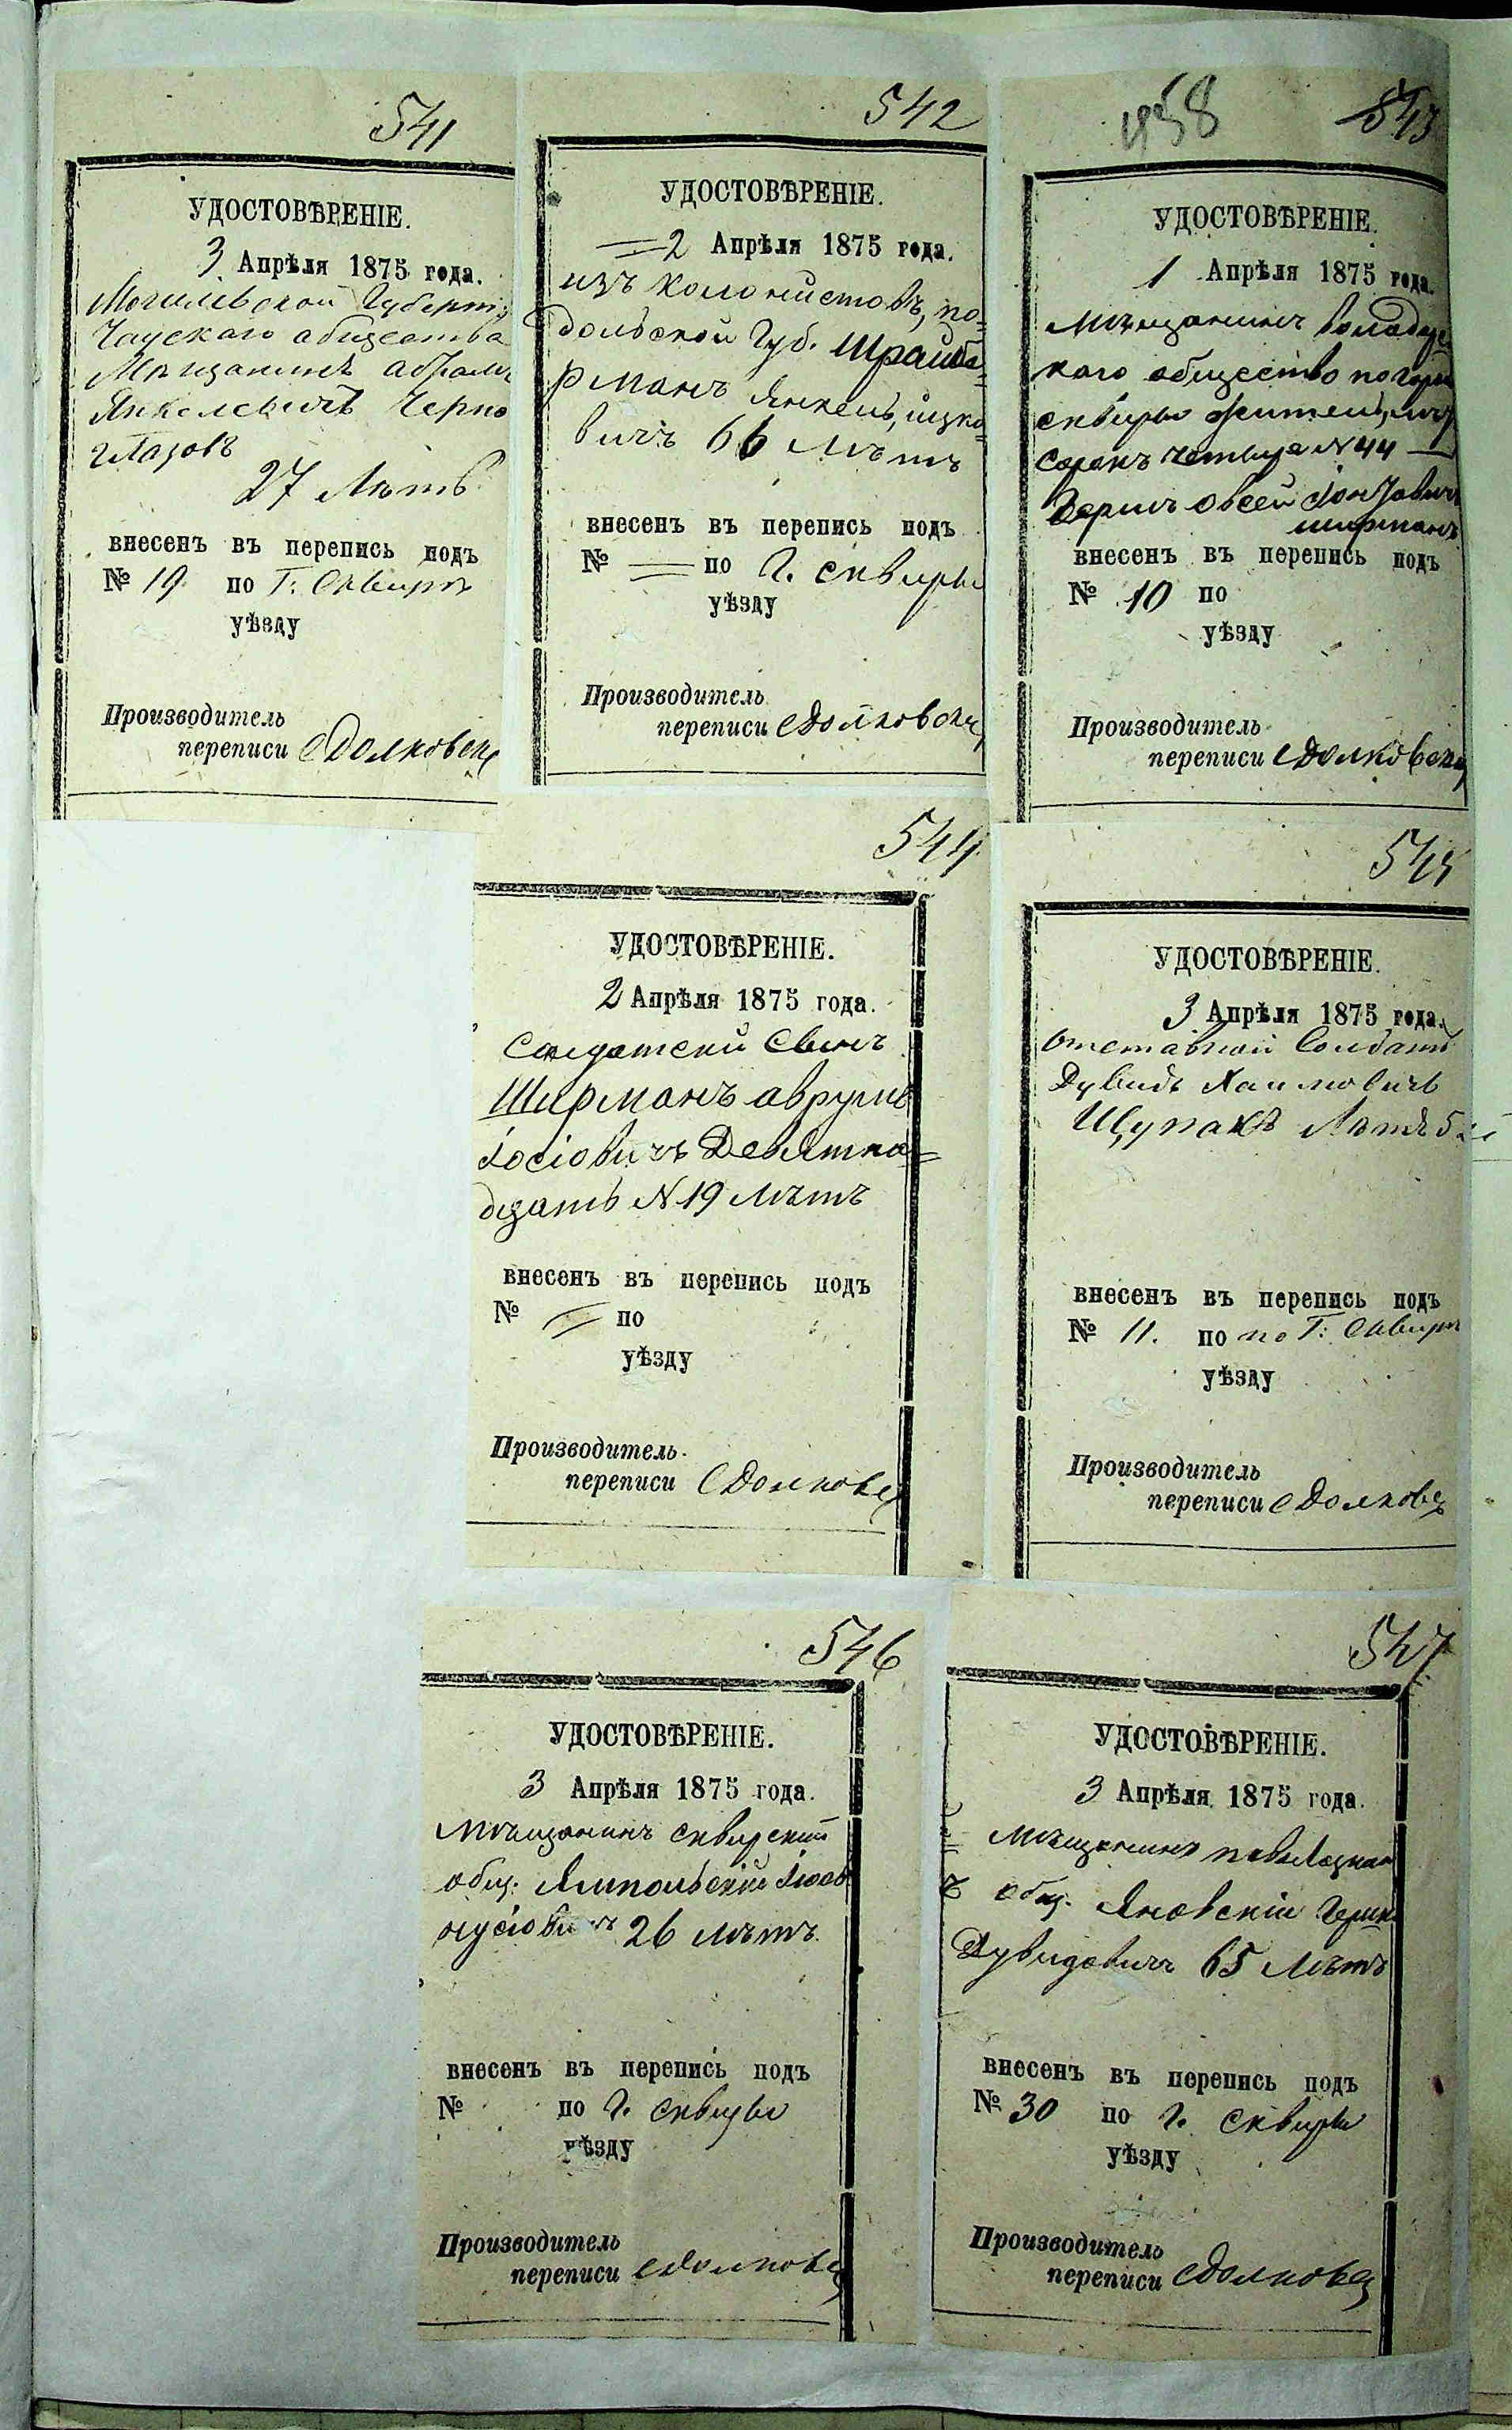 541
УДОСТОВѢРЕНІЕ.
3 Апрѣля 1875 года.
Могилевской Губерніи
Чаускаго общества
Мѣщанинъ Абрамъ
Янкелевичъ Черно
глазовъ
27 Лѣтъ
внесенъ въ перепись подъ
№ 19 по Г: Сквирѣ
уѣзду
Производитель
переписи
542
УДОСТОВѢРЕНІЕ.
2 Апрѣля 1875 года.
изъ колонистовъ, по=
дольской Губ.
рманъ Янкель, ицко=
вичъ 66 лѣтъ
внесенъ въ перепись подъ
№ — по г. сквиры
уѣзду
Производитель
переписи
958
543
УДОСТОВѢРЕНІЕ.
1 Апрѣля 1875 года.
мѣщанинъ
каго общество по
сквиры житель,
сорокъ четыре N 44
овсей
ширманъ
внесенъ въ перепись подъ
№ 10 по
уѣзду
Производитель
переписи
544
УДОСТОВѢРЕНІЕ.
2 Апрѣля 1875 года.
Солдатски Сынъ
Ширманъ аврумъ
Іосіовичъ Девятна=
дцать N 19 лѣтъ
внесенъ въ перепись подъ
№ по
уѣзду
Производитель
переписи
545
УДОСТОВѢРЕНІЕ.
3 Апрѣля 1875 года.
Отставной Солдатъ
Дувидъ Хаимовичъ
Щупакъ Лѣтъ
внесенъ въ перепись подъ
№ 11. по по Г: Сквирѣ
уѣзду
Производитель
переписи
546
УДОСТОВѢРЕНІЕ.
3 Апрѣля 1875 года.
мѣщанинъ сквирскій
общ. Ямпольскій
26 лѣтъ.
внесенъ въ перепись подъ
№ по г. сквиры
уѣзду
Производитель
переписи
547
УДОСТОВѢРЕНІЕ.
3 Апрѣля 1875 года.
мѣщанинъ
общ. Яновскій
Дувидовичъ 65 лѣтъ
внесенъ въ перепись подъ
№ 30 по г. сквиры
уѣзду
Производитель
переписи